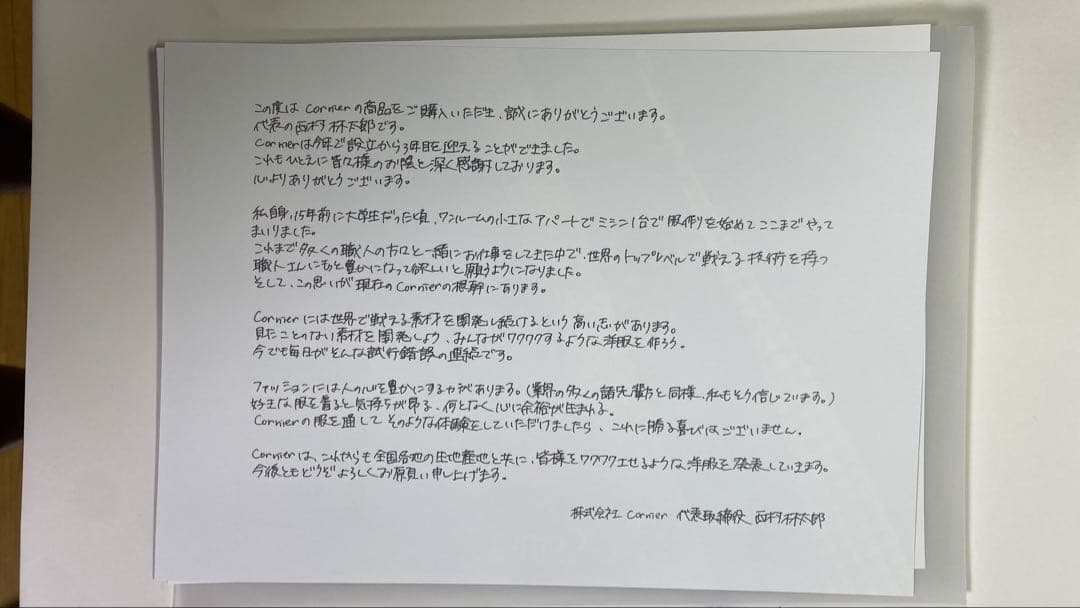 この度は Cornierの商品をご購入いただき、誠にありがとうございます。
代表の西村林太郎です。
Cornierは今年で設立から3年目を迎えることができました。
これもひとえに皆々様のお陰と深く感謝しております。
心よりありがとうございます。
私自身、15年前に大学生だった頃、ワンルームの小さなアパートでミシン1台で服作りを始めてここまでやって
まいりました。
これまで多くの職人の方々と一緒にお仕事をしてきた中で、世界のトップレベルで戦える技術を持つ
職人さんにもっと豊かになって欲しいと願うようになりました。
そして、この思いが現在のCornierの根幹にあります。
Cornierには世界で戦える素材を開発し続けるという高い志があります。
見たことのない素材を開発しよう、みんながワクワクするような洋服を作ろう。
今でも毎日がそんな試行錯誤の連続です。
ファッションには人の心を豊かにする力があります。(業界の多くの諸先輩方と同様、私もそう信じています。)
好きな服を着ると気持ちが昂る、何となく心に余裕が生まれる。
Cornierの服を通してそのような体験をしていただけましたら、これに勝る喜びはございません。
Cornierは、これからも全国各地の生地産地と共に、皆様をワクワクさせるような洋服を発表していきます。
今後ともどうぞよろしくお願い申し上げます。
株式会社 Cornier 代表取締役 西村林太郎